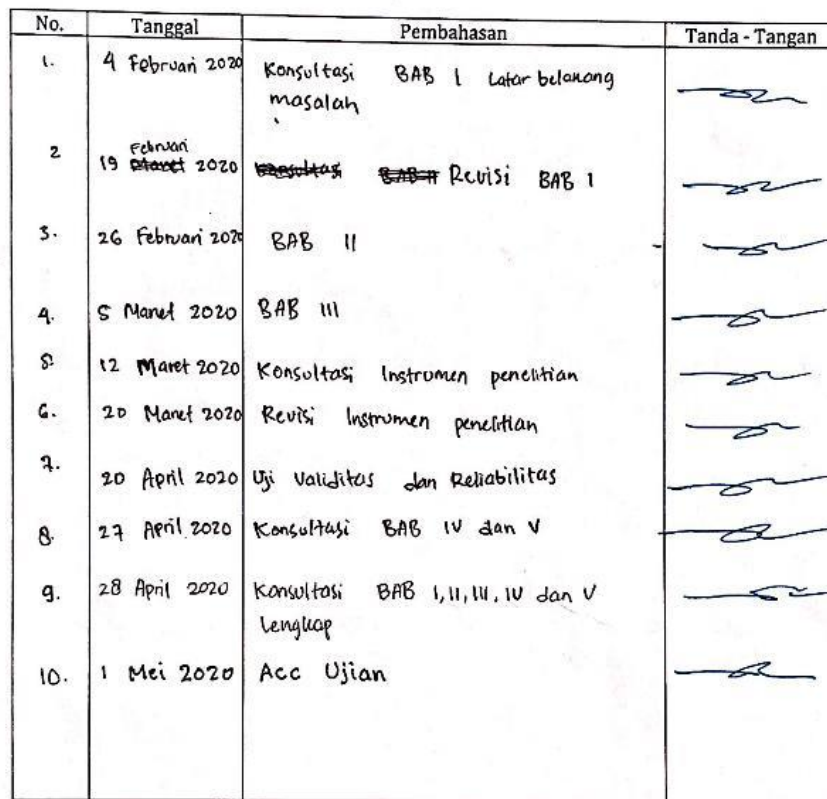 No. Tanggal Pembahasan Tanda - Tangan
1. 4 Februari 2020 Konsultasi BAB I Latar belakang
masalah
Februari
2 19 Maret 2020 Konsultasi BAB II Revisi BAB I
3. 26 Februari 2020 BAB II
4. 5 Maret 2020 BAB III
5. 12 Maret 2020 Konsultasi Instrumen penelitian
6. 20 Maret 2020 Revisi Instrumen penelitian
7. 20 April 2020 Uji Validitas dan Reliabilitas
8. 27 April 2020 Konsultasi BAB IV dan V
9. 28 April 2020 Konsultasi BAB I, II, III, IV dan V
lengkap
10. 1 Mei 2020 Acc Ujian